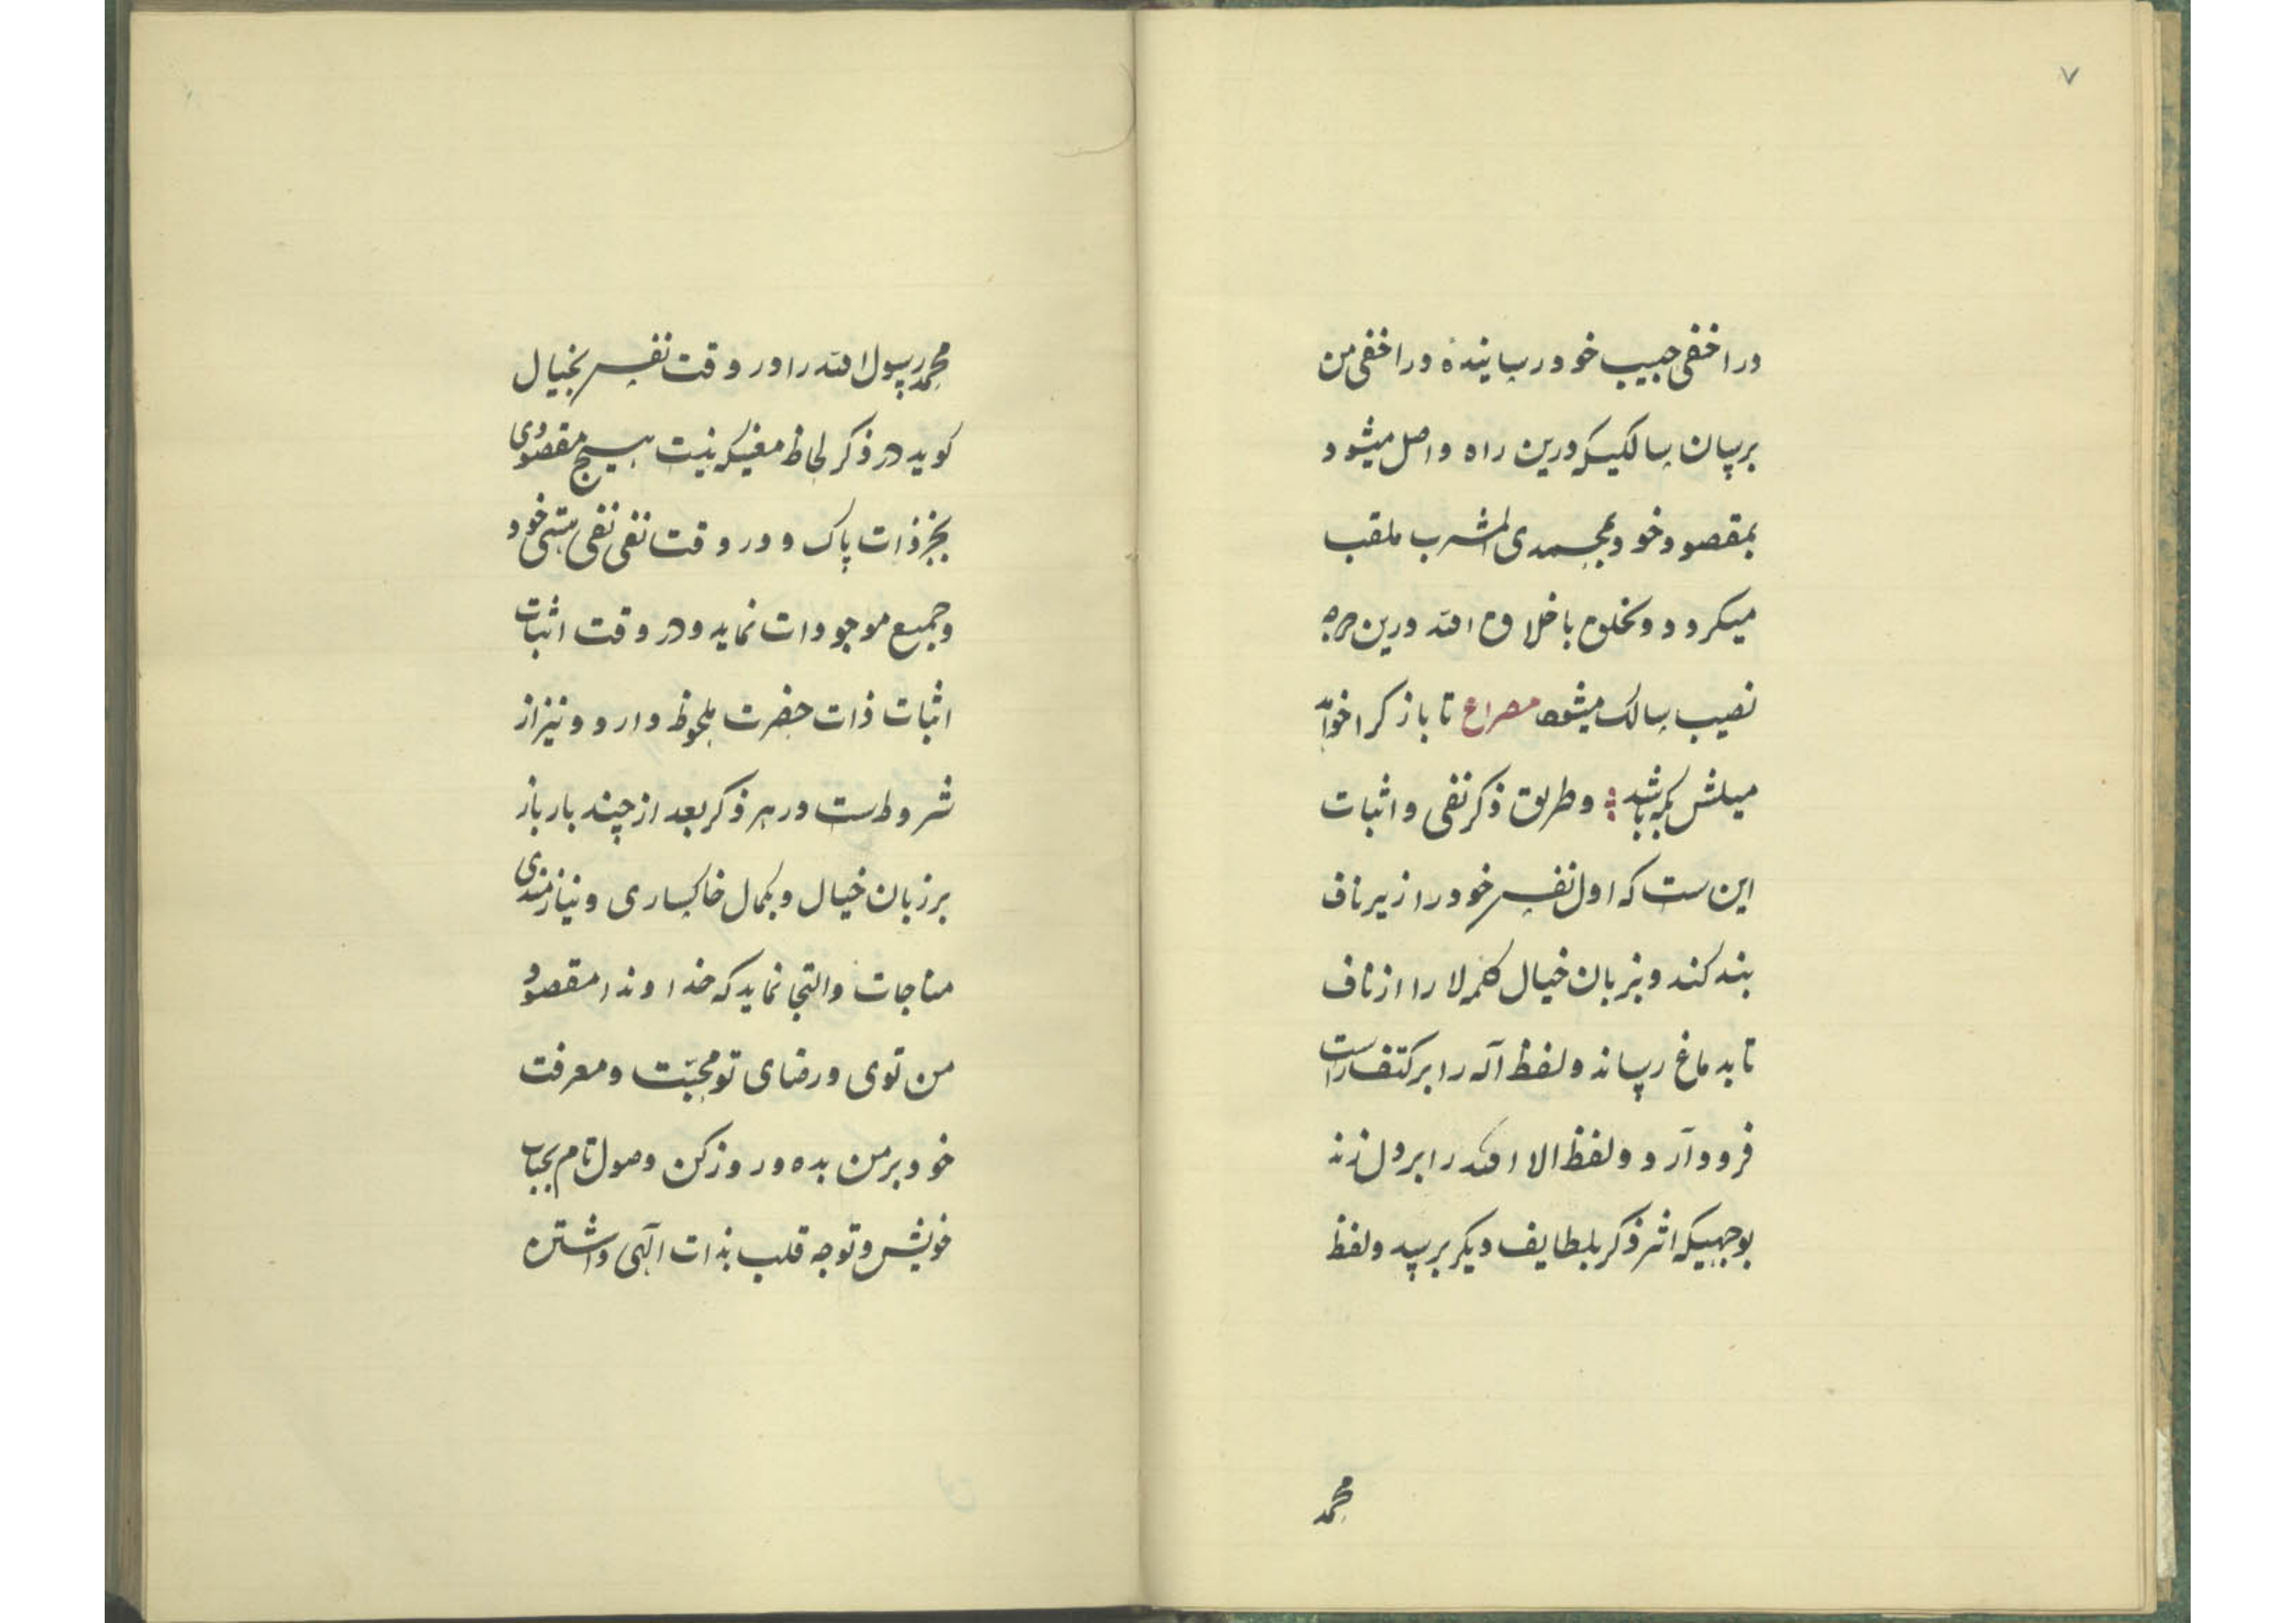 ۷
در اخفی حبیب خود رسانیدهٔ در اخفی من
برسان سالکیکه درین راه واصل میشود
بمقصود خود محمدی المشرب ملقب
میکردد و تخلق باخلاق الله درین مرتبه
نصیب سالک میشود مصراع تا باز کرا خواهد
میلش بکه باشد وطریق ذکر نفی و اثبات
این ست که اول نفس خود را زیر ناف
بند کند و بزبان خیال کلمه لا را از ناف
تا بدماغ رساند ولفظ آله را بر کتف راست
فرود آرد ولفظ الا الله را بر دل زند
بوجهیکه اثر ذکر بلطایف دیکر برسد ولفظ
محمد
محمد رسول الله را در وقت نفس بخیال
کوید در ذکر لحاظ معنیکه نیست هیچ مقصودی
بجز ذات پاک و در وقت نفی نفی هستی خود
وجمیع موجودات نماید ودر وقت اثبات
اثبات ذات حضرت ملحوظ دارد و نیز از
شروط ست در هر ذکر بعد از چند بار باز
بر زبان خیال و بکمال خاکساری و نیازمندی
مناجات والتجا نماید که خداوندا مقصود
من توی و رضای تو محبّت ومعرفت
خود بر من بده و روز کن وصول تام بجناب
خویش و توجه قلب بذات الهی داشتن